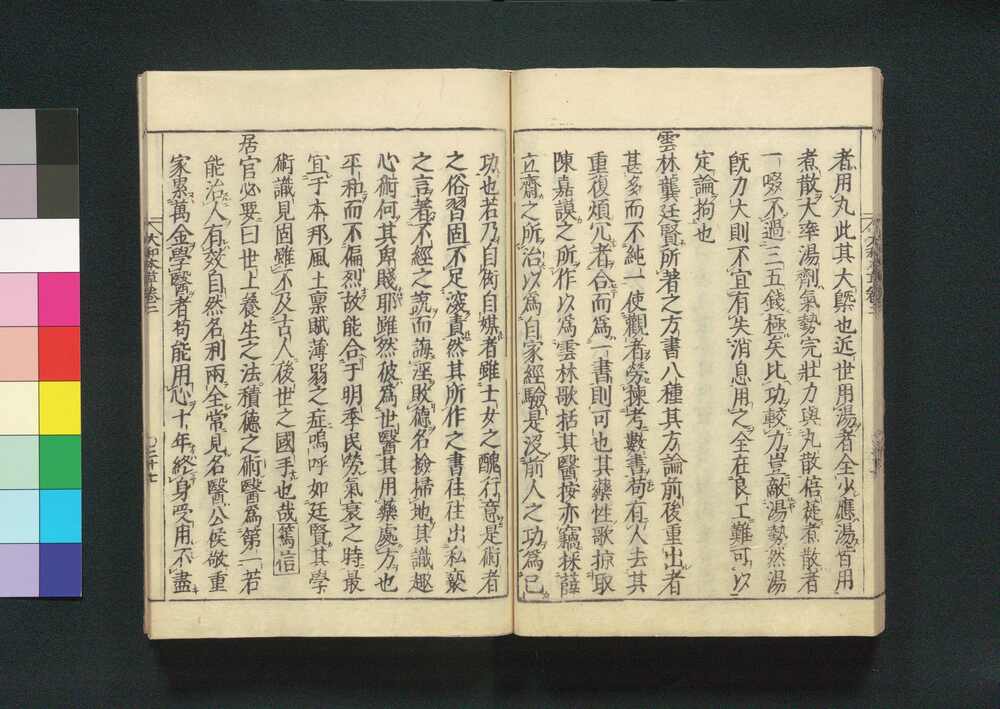 者用丸此其大槩也近世用湯者全少應湯皆用
煮散大率湯劑氣勢完壯力與丸散倍蓰煮散者
一啜不過三五錢極矣比功較力豈敵湯勢然湯
既力大則不宜有失消息用之全在良工難可以
定論拘也
雲林龔廷賢所著之方書八種其方論前後重出者
甚多而不純一使觀者勞揀考數書苟有人去其
重復煩冗者合而爲一書則可也其藥性歌掠取
陳嘉謨之所作以爲雲林歌括其醫按亦竊採薛
立齋之所治以爲自家經驗是沒前人之功爲己
功也若乃自衒自媒者雖士女之醜行意是術者
之俗習固不足深責然其所作之書往往出私褻
之言著不經之說而誨淫敗德名檢掃地其識趣
心術何其卑賤耶雖然彼爲世醫其用藥處方也
平和而不偏烈故能合于明季民勞氣衰之時最
宜于本邦風土禀賦薄弱之症嗚呼如廷賢其學
術識見固雖不及古人後世之國手也哉 篤信
居官必要曰世上養生之法積德之術醫爲第一若
能治人有效自然名利兩全常見名醫公侯敬重
家累萬金學醫者苟能用心十年終身受用不盡
大和本草卷二